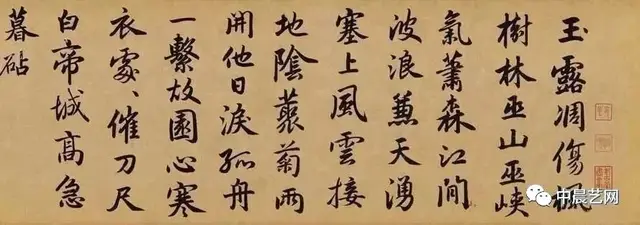 玉露凋傷楓
樹林巫山巫峽
氣蕭森江間
波浪兼天湧
塞上風雲接
地陰藂菊兩
開他日淚孤舟
一繫故園心寒
衣處、催刀尺
白帝城高急
暮砧
中晨艺网